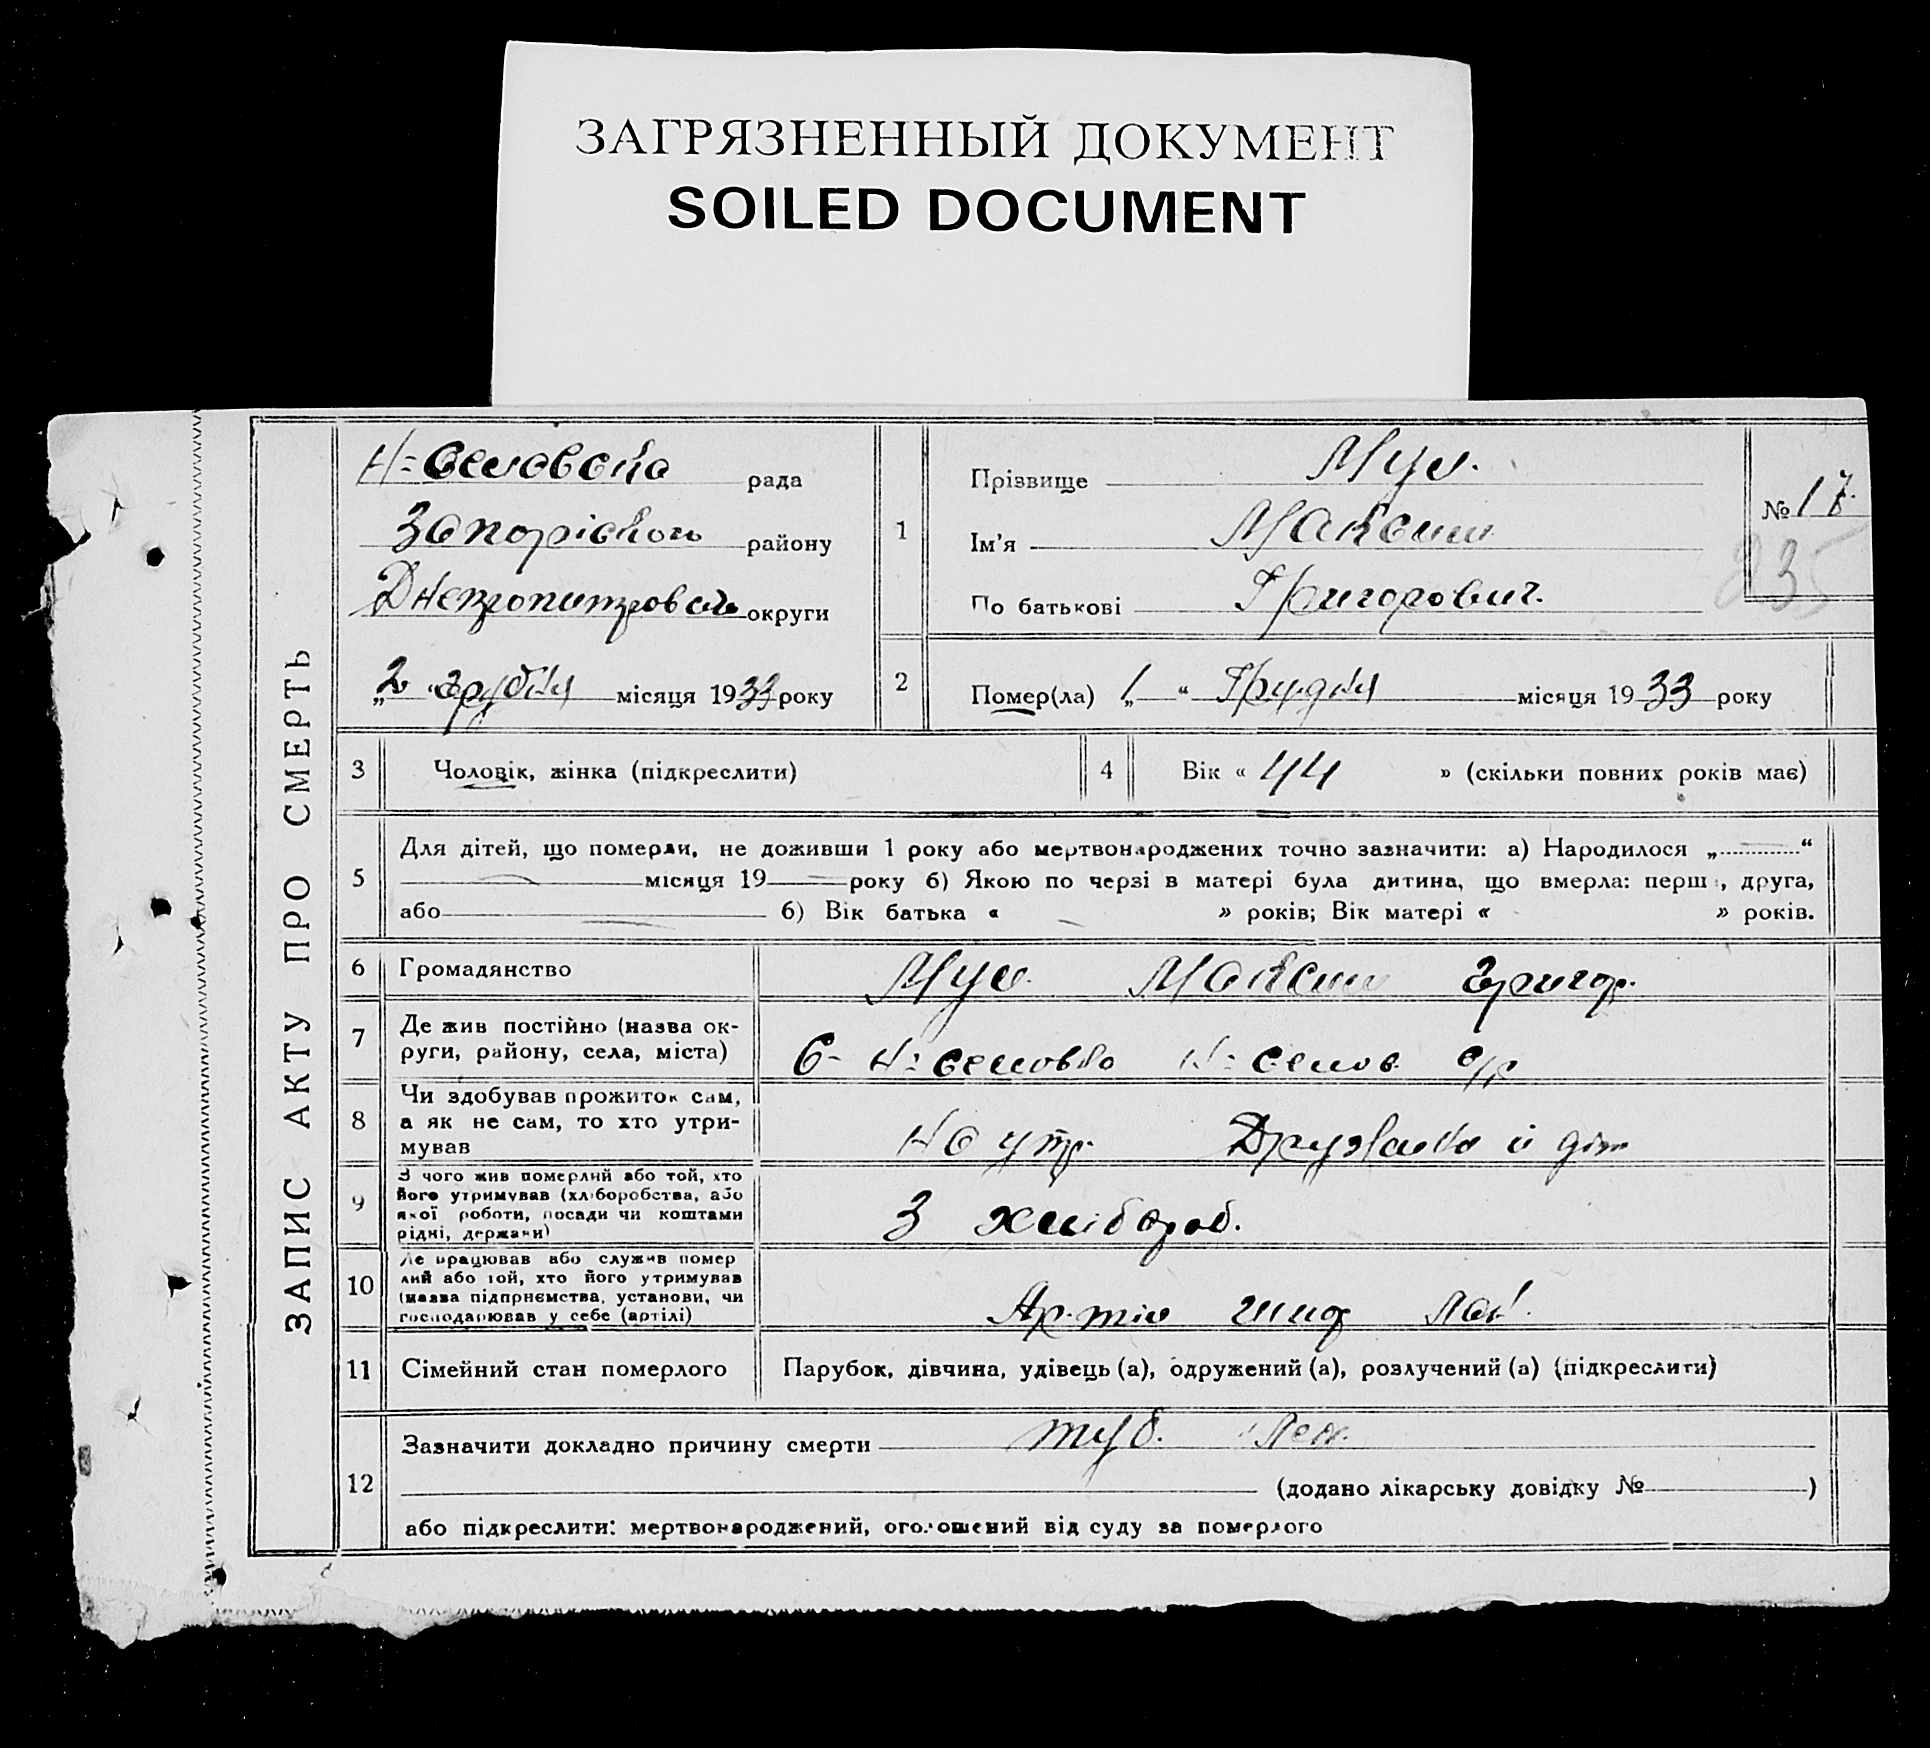 ЗАГРЯЗНЕННЫЙ ДОКУМЕНТ
SOILED DOCUMENT
ЗАПИС АКТУ ПРО СМЕРТЬ
рада
Запорізького району
округи
„2“ грудня місяця 1933 року
1
Прізвище
Ім'я Максим
По батькові Григорович.
№ 17.
235
2
Помер(ла) „1“ Грудня місяця 1933 року
3
Чоловік, жінка (підкреслити)
4
Вік « 44 » (скільки повних років має)
5
Для дітей, що померли, не доживши 1 року або мертвонароджених точно зазначити: а) Народилося „ “
місяця 19 року б) Якою по черзі в матері була дитина, що вмерла: перша, друга,
або б) Вік батька « » років; Вік матері « » років.
6
Громадянство
Максим Григор.
7
Де жив постійно (назва ок-
руги, району, села, міста)
с/р
8
Чи здобував прожиток сам,
а як не сам, то хто утри-
мував
На утр. і діт
9
З чого жив померлий або той, хто
його утримував (хліборобства, або
якої роботи, посади чи коштами
рідні, держави)
З хлібороб.
10
Де працював або служив помер
лий або той, хто його утримував
(назва підприємства, установи, чи
господарював у себе (артілі)
11
Сімейний стан померлого
Парубок, дівчина, удівець (а), одружений (а), розлучений (а) (підкреслити)
12
Зазначити докладно причину смерти туб. Лег.
(додано лікарську довідку № )
або підкреслити: мертвонароджений, оголошений від суду за померлого